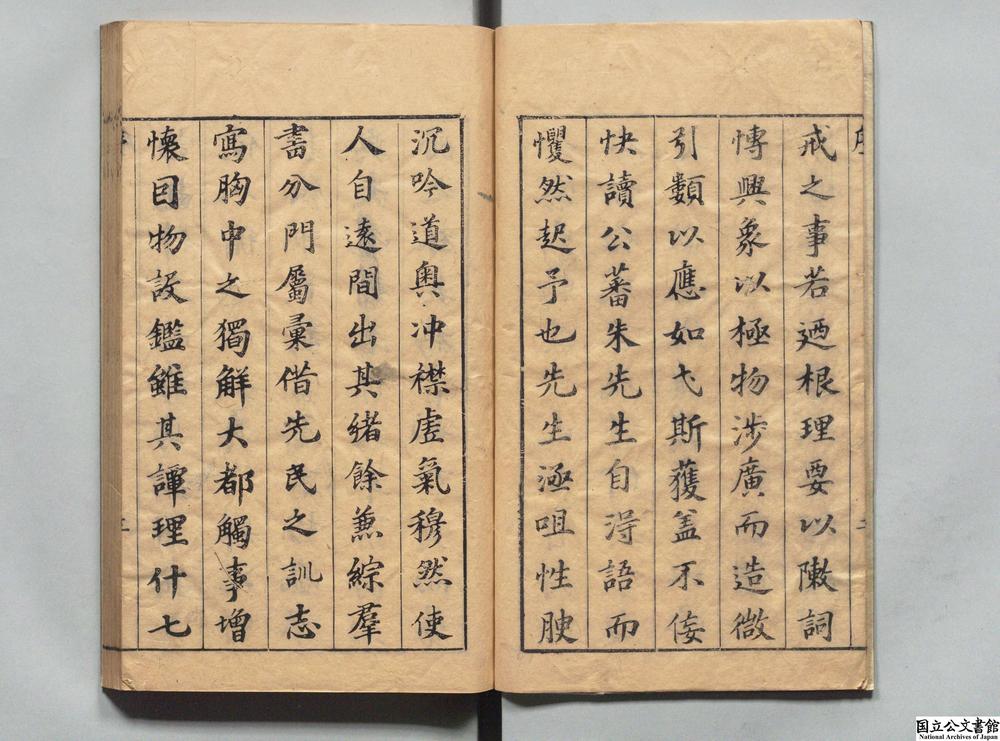 戒之事若迺根理要以敶詞
慱興象以極物涉廣而造微
引類以應如弋斯獲盖不佞
快讀公蕃朱先生自淂語而
戄然起予也先生涵咀性腴
沉吟道奥冲襟虗氣穆然使
人自遠間出其緒餘兼綜羣
書分門屬彙借先民之訓志
寫胸中之獨解大都觸事增
懐因物設鑑雖其譚理什七
国立公文書館
National Archives of Japan